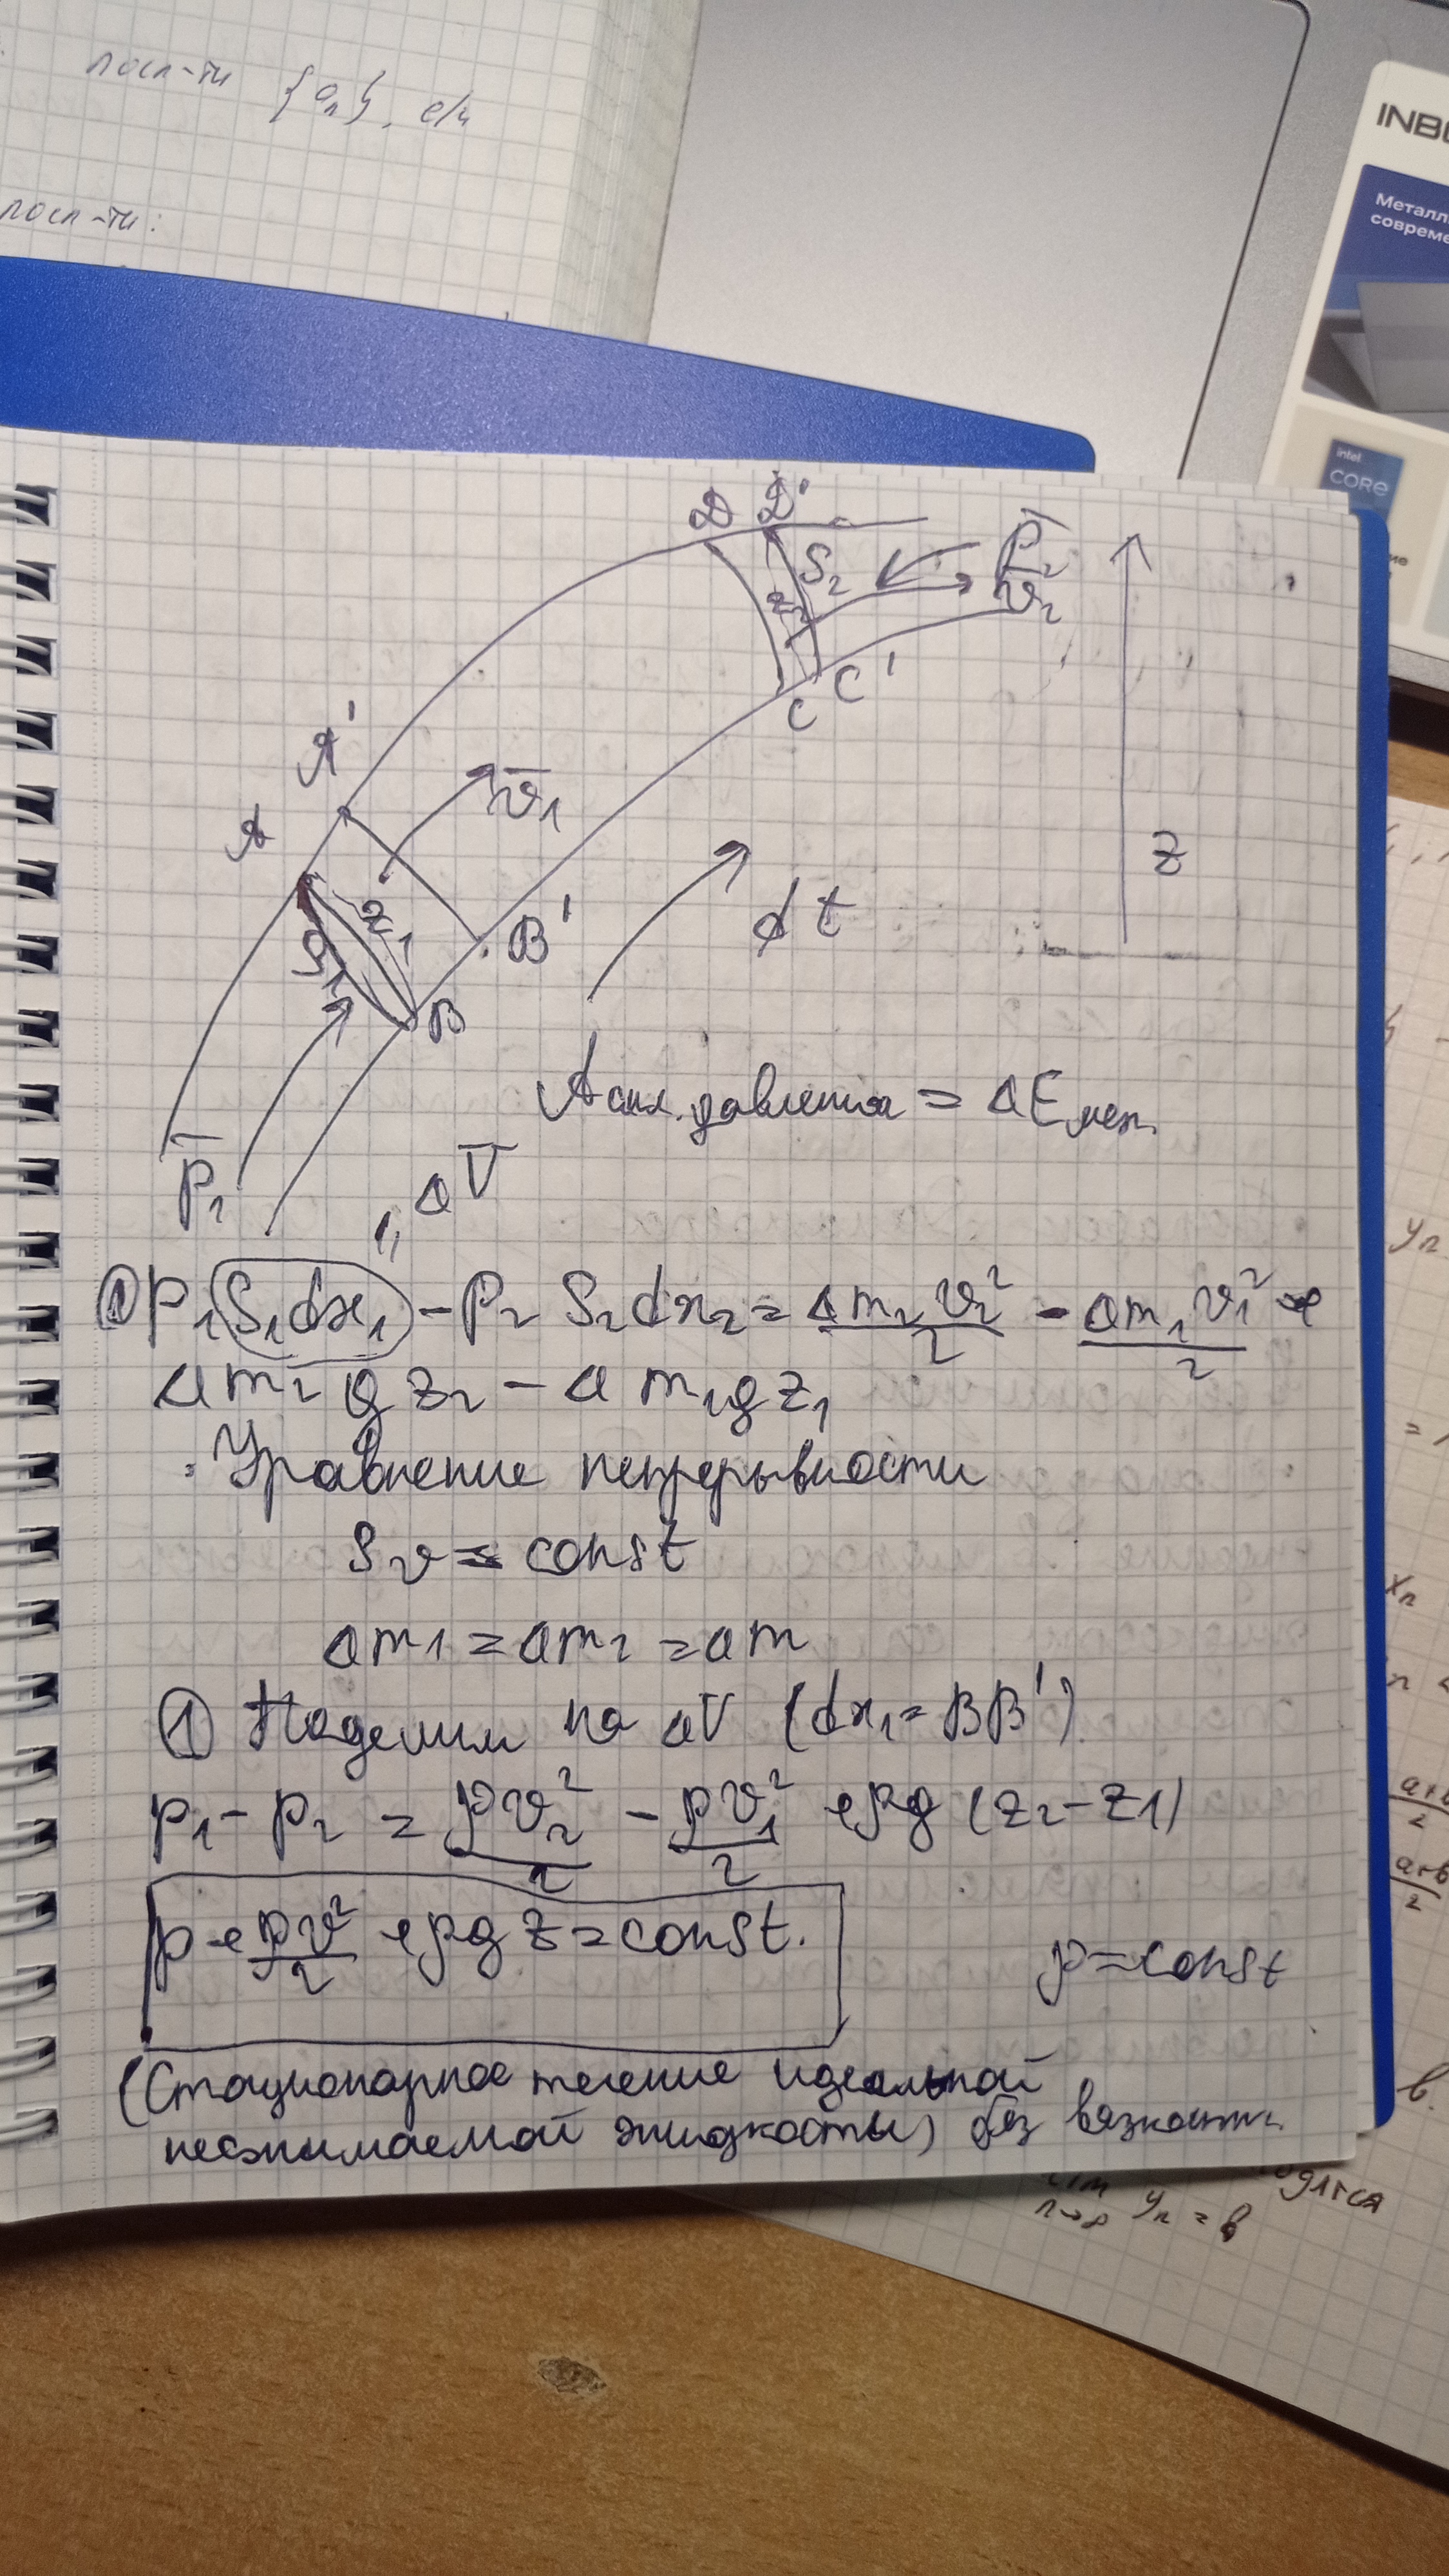 посл-ти {aₙ}, е/и
посл-ти:
INB
Металл
совреме
intel
CORE
D D'
S₂
p̄₂
z₂
v̄₂
C'
C
A'
A
v̄₁
z
z₁
B'
dt
S₁
B
A сил. давления = ΔE мех.
p̄₁
ΔV
① p₁ S₁dx₁ - p₂ S₂dx₂ = Δm₂v₂²/2 - Δm₁v₁²/2 +
Δm₂gz₂ - Δm₁gz₁
Уравнение непрерывности
Sv = const
Δm₁ = Δm₂ = Δm
① Поделим на ΔV (dx₁ = BB')
p₁ - p₂ = ρv₂²/2 - ρv₁²/2 + ρg (z₂ - z₁)
p + ρv²/2 + ρgz = const.
ρ = const
(Стационарное течение идеальной
несжимаемой жидкости) без вязкости.
yₙ
xₙ
a+b/2
a+b/2
lim n→∞ yₙ = b